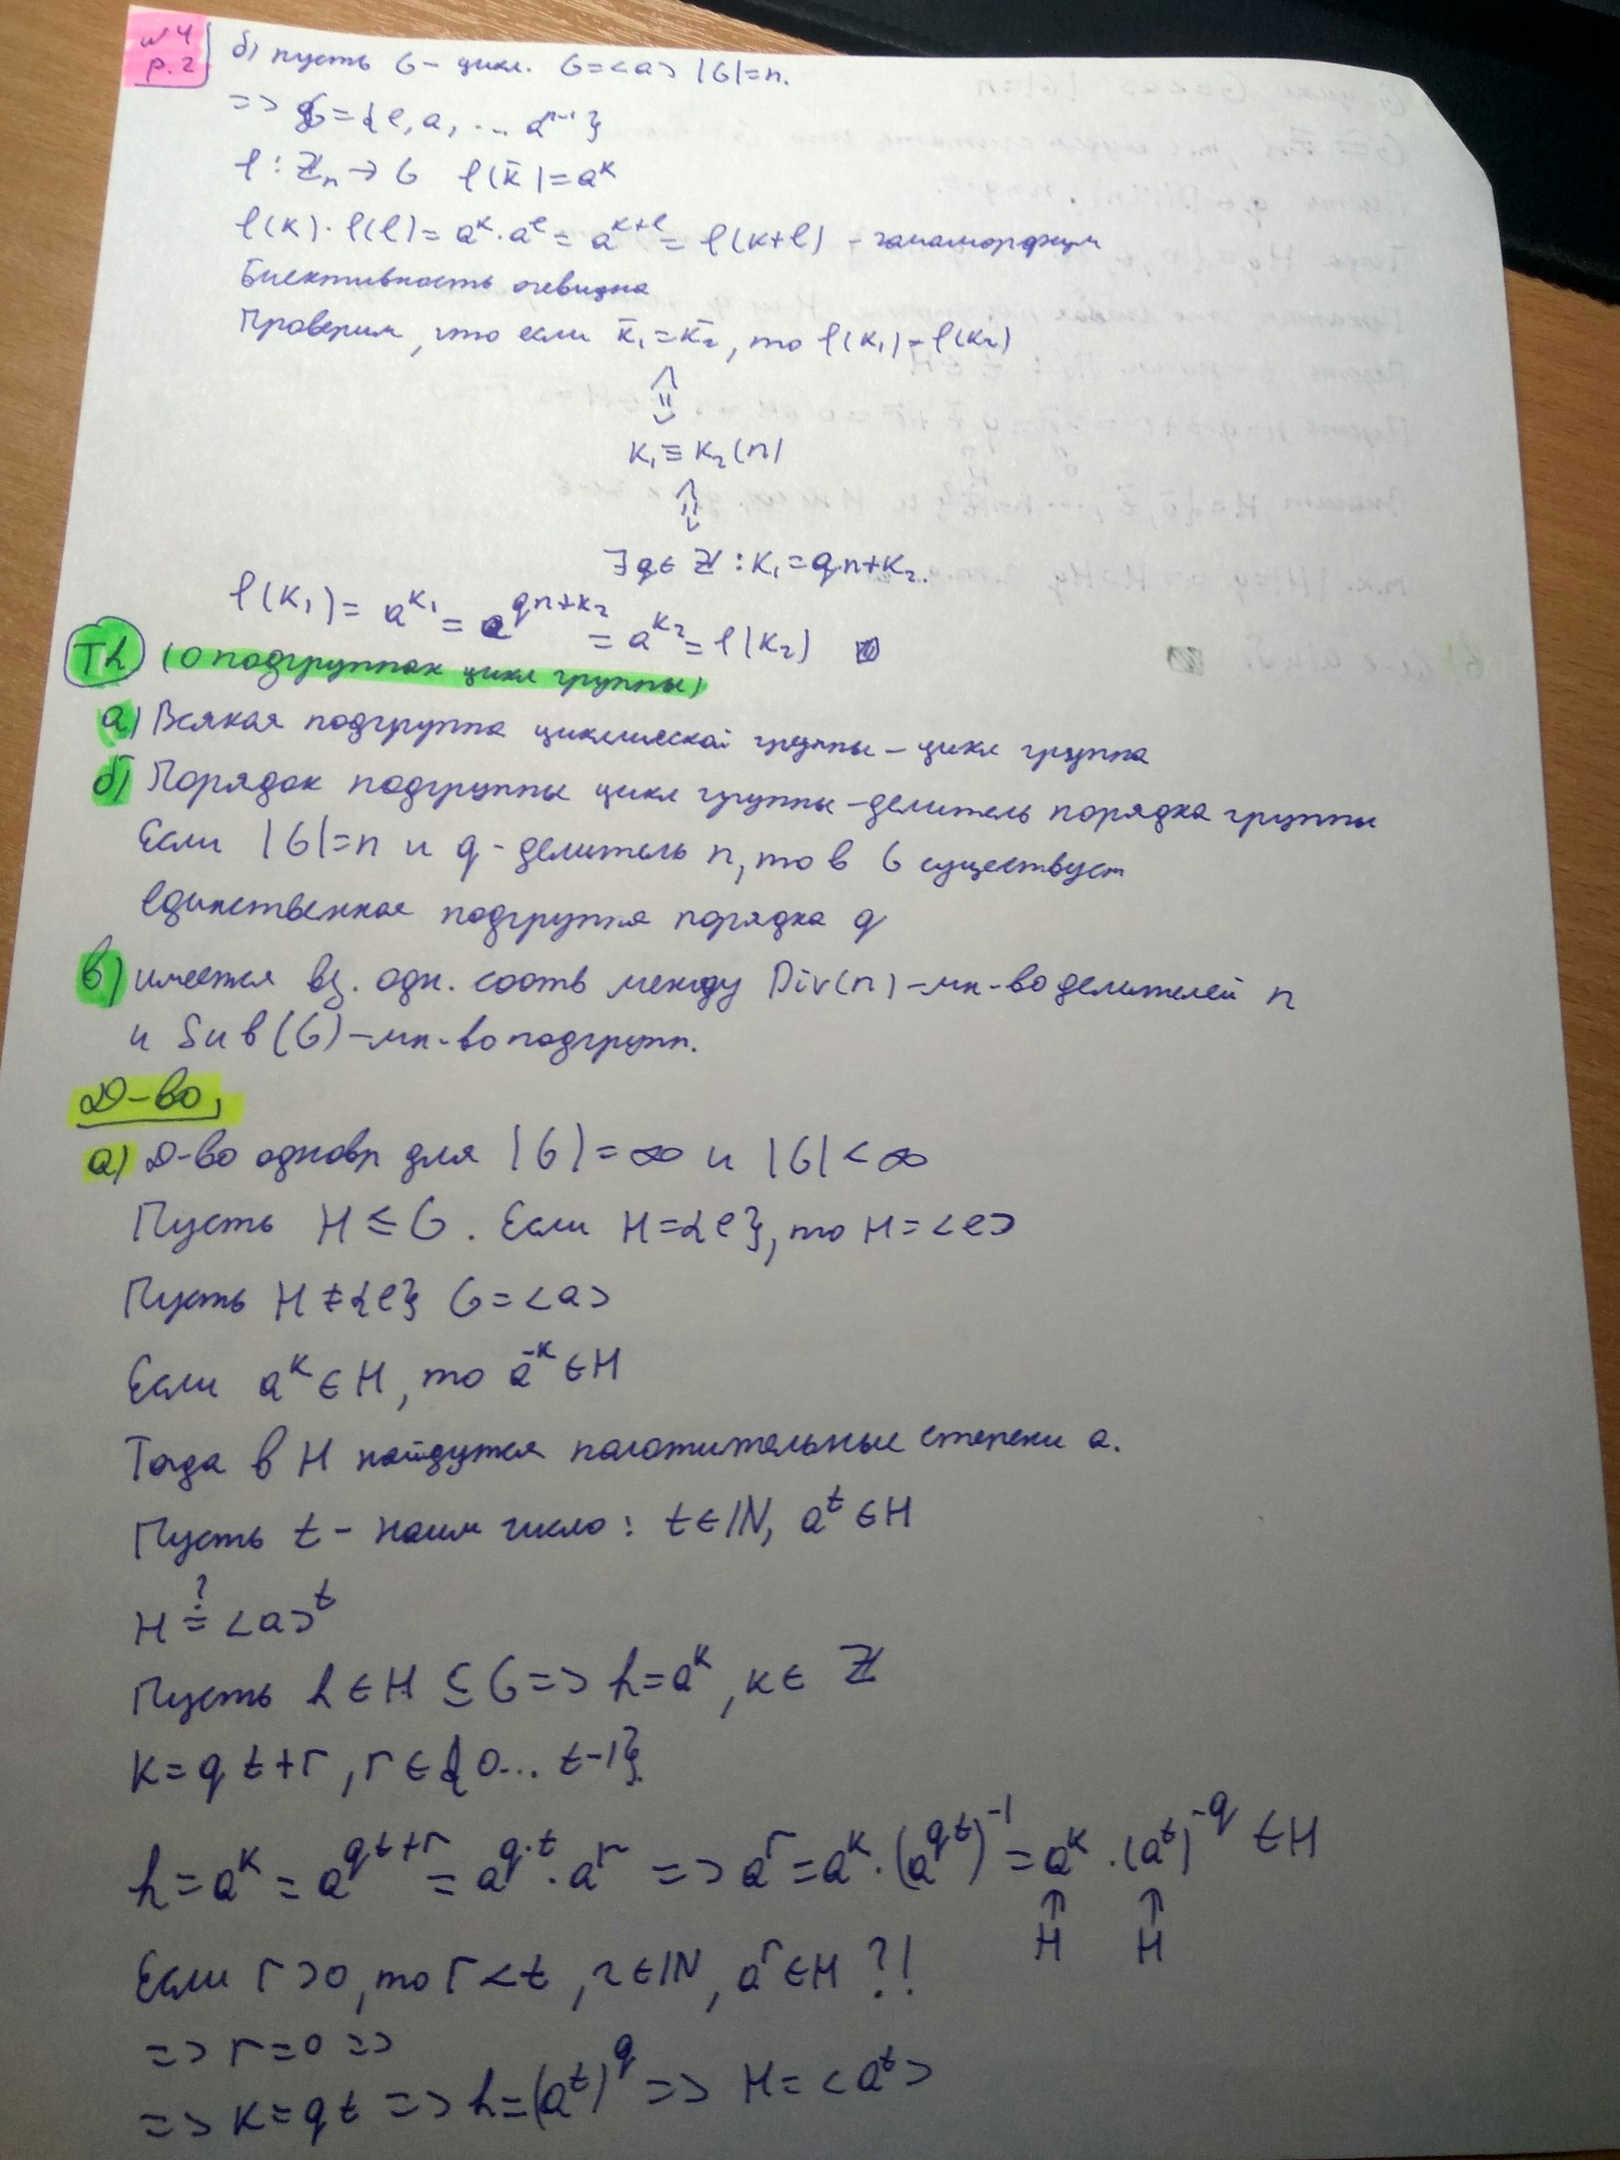 №4
р.2
б) пусть G – цикл. G=<a> |G|=n.
=> G={e,a,... aⁿ⁻¹}
f: ℤₙ → G f(k̄)=aᵏ
f(k)·f(l)=aᵏ·aˡ=aᵏ⁺ˡ=f(k+l) – гомоморфизм
Биективность очевидна
Проверим, что если k̄₁=k̄₂, то f(k₁)=f(k₂)
⇕
k₁≡k₂(n)
⇕
∃q∈ℤ: k₁=qn+k₂.
f(k₁)=a^(k₁)=a^(qn+k₂)=a^(k₂)=f(k₂)
Th (о подгруппах цикл группы)
а) Всякая подгруппа циклической группы – цикл группа
б) Порядок подгруппы цикл группы – делитель порядка группы
Если |G|=n и q – делитель n, то в G существует
единственная подгруппа порядка q
в) имеется вз. одн. соотв между Div(n) – мн-во делителей n
и Sub(G) – мн-во подгрупп.
Д-во,
а) Д-во одновр для |G|=∞ и |G|<∞
Пусть H≤G. Если H={e}, то H=<e>
Пусть H≠{e} G=<a>
Если aᵏ∈H, то a⁻ᵏ∈H
Тогда в H найдутся положительные степени a.
Пусть t – наим число: t∈ℕ, aᵗ∈H
H ≟ <a>ᵗ
Пусть h∈H⊆G => h=aᵏ, k∈ℤ
k=qt+r, r∈{0... t-1}.
h=aᵏ=a^(qt+r)=a^(q·t)·aʳ => aʳ=aᵏ·(a^(qt))⁻¹=aᵏ·(aᵗ)^(-q)∈H
↑ ↑
H H
Если r>0, то r<t, r∈ℕ, aʳ∈H ?!
=> r=0 =>
=> k=qt => h=(aᵗ)^q => H=<aᵗ>